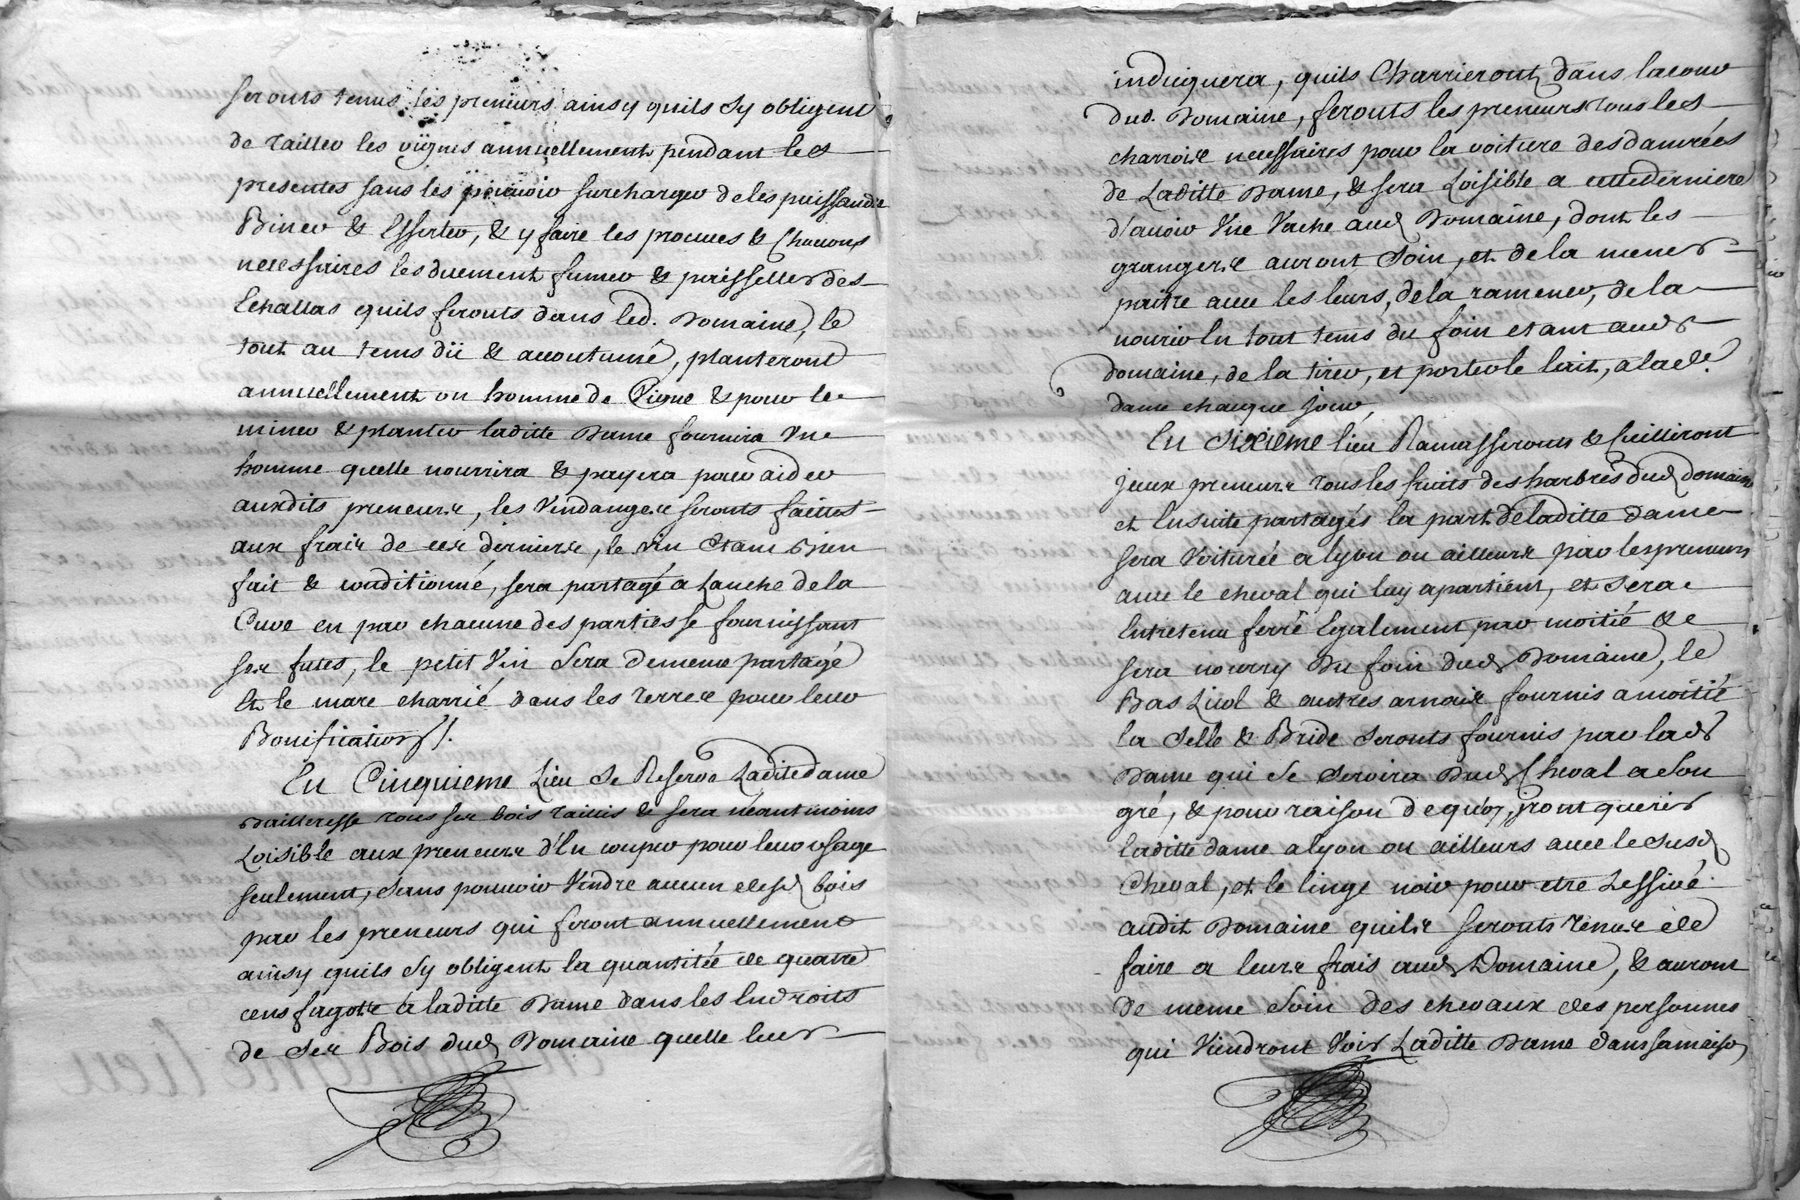 serouts tenus les preneurs ainsy quils sy obligent
de tailler les vignes annuellement pendant les
presentes sans les pouvoir surcharger deles puissander
Biner & Essarter, & y faire les prouves & Chavons
necessaires les duement fumer & paisseller des
Echallas quils ferouts dans led. Domaine, le
tout au tems dü & accoutumé, planteront
annuellement un homme de Vigne & pour le
miner & planter laditte Dame fournira Une
homme quelle nourrira & payera pour aider
auxdits preneurs, les Vendanges serouts faittes
aux frais de ces derniers, le vin Etant Bien
fait & conditionné, sera partagé a Lanche de la
Cuve en par chacune des parties se fournissant
ses futes, le petit Vin Sera demême partagé
Et le marc charrié dans les Terres pour leur
Bonification //.
En Cinquieme Lieu Se Reserve Laditte dame
Bailleresse tous ses bois taillis & sera néantmoins
Loisible aux preneurs d'En couper pour leur usage
seulement, sans pouvoir Vendre aucun desd bois
par les preneurs qui feront annuellement
ainsy quils sy obligent la quantitée de quatre
cens fagots a laditte Dame dans les Endroits
de Ses Bois dud Domaine quelle leur
indiquera, quils Charrieront dans lacour
dud. Domaine, ferouts les preneurs tous les
charrois necessaires pour la voiture des danrées
de Laditte Dame, & sera Loisible a cette derniere
d'avoir Une Vache aud Domaine, dont les
grangers auront Soin, et de la mener
paitre avec les leurs, de la ramener, de la
nourir En tout tems du foin etant aud
domaine, de la tirer, et porter le lait, a lad.e
dame chaque jour,
En Sixieme lieu Ramasserouts & Cueilliront
jceux preneurs tous les fruits des harbres dud domaine
et Ensuite partagés la part de laditte dame
sera Voiturée a lyon ou ailleurs par les preneurs
avec le cheval qui luy apartient, et Sera
Entretenu ferré Egalement par moitié &
sera nourry Du foin dud Domaine, le
Bas Licol & autres arnais fournis a moitié
la Selle & Bride Serouts fournis par lad
Dame qui Se Servira Dud Cheval a Son
gré, & pour raison dequoy, jront querir
laditte dame a lyon ou ailleurs avec le Susd
Cheval, et le linge noir pour etre Lessivé
audit Domaine quils Serouts tenus de
faire a leurs frais aud Domaine, & auront
de meme Soin des chevaux des personnes
qui Viendront Voir Laditte Dame dans samaison